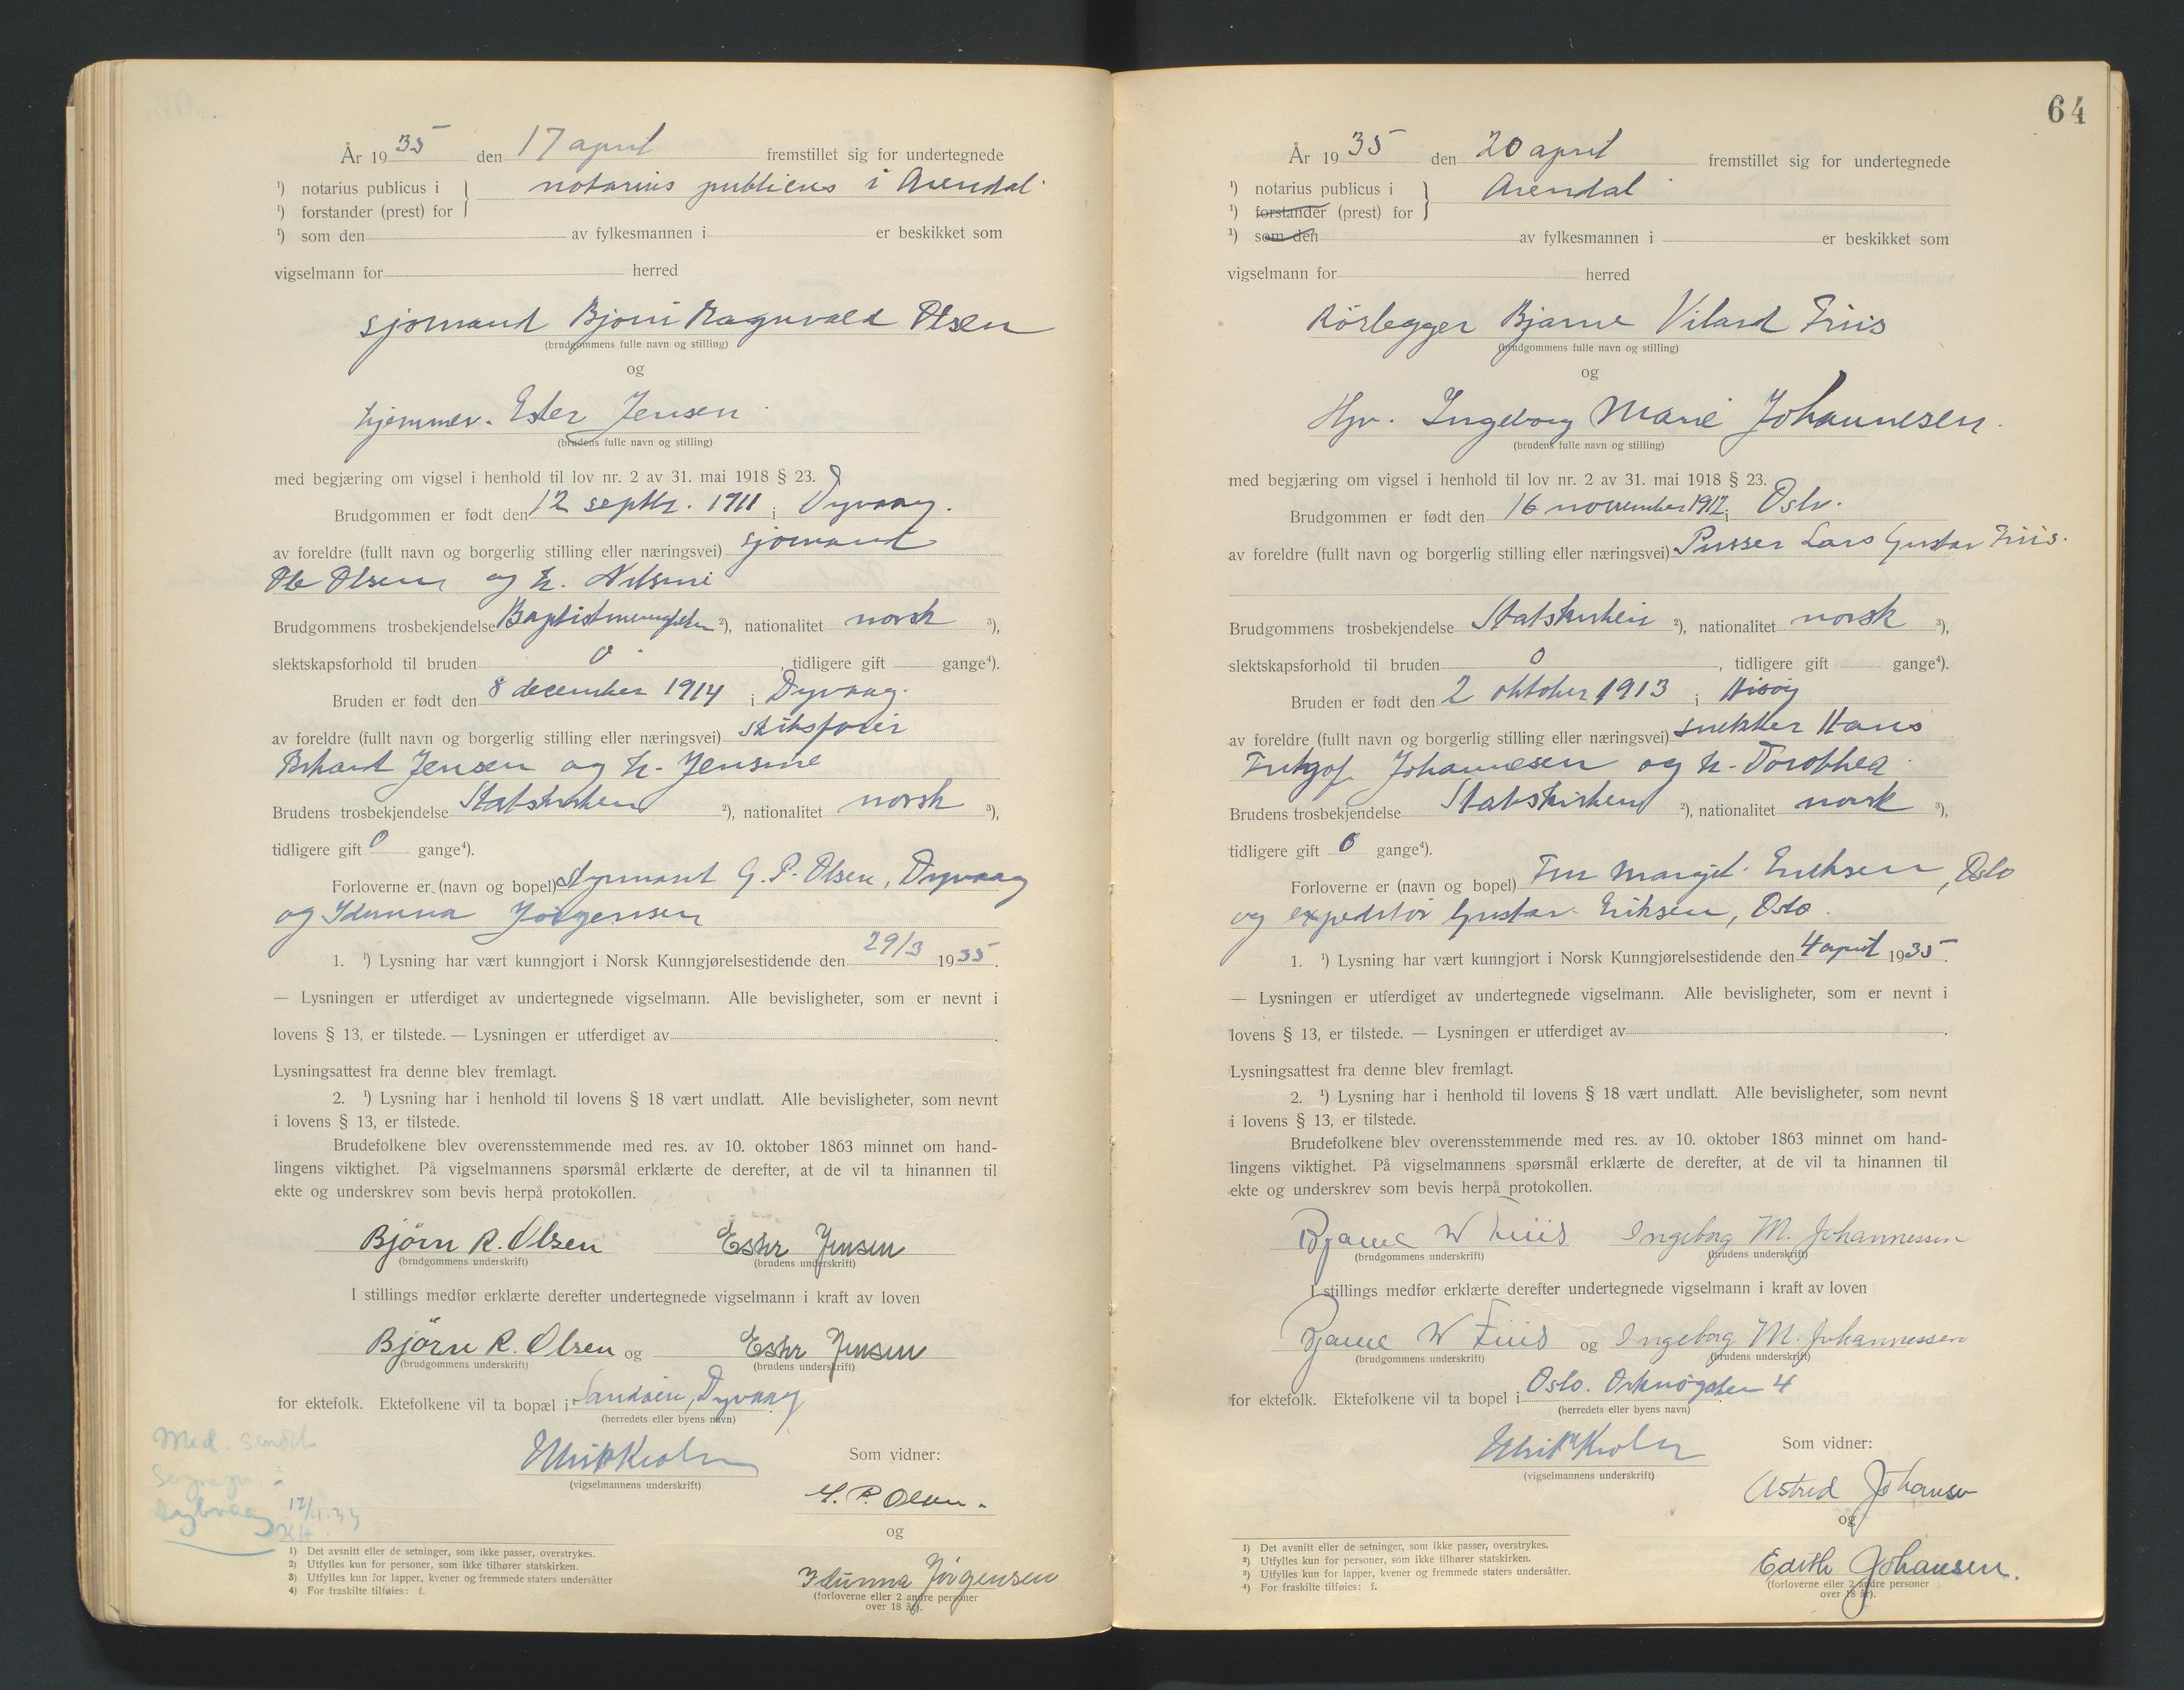 År 1935 den 17 april fremstillet sig for undertegnede
¹) notarius publicus i } notarius publicus i Arendal.
¹) forstander (prest) for
¹) som den av fylkesmannen i er beskikket som
vigselmann for herred
sjømand Bjørn Ragnvald Olsen
(brudgommens fulle navn og stilling)
og
hjemmev. Ester Jensen.
(brudens fulle navn og stilling)
med begjæring om vigsel i henhold til lov nr. 2 av 31. mai 1918 § 23.
Brudgommen er født den 12 septbr. 1911 i Dyvaag.
av foreldre (fullt navn og borgerlig stilling eller næringsvei) sjømand
Ole Olsen og h. Nilsine
Brudgommens trosbekjendelse Baptistmenigheten ²), nationalitet norsk ³),
slektskapsforhold til bruden 0 , tidligere gift gange⁴).
Bruden er født den 8 december 1914 i Dyvaag.
av foreldre (fullt navn og borgerlig stilling eller næringsvei) skibsfører
Jensen og h. Jensine
Brudens trosbekjendelse Statskirken ²), nationalitet norsk ³),
tidligere gift 0 gange⁴).
Forloverne er (navn og bopel) styrmand G. P. Olsen, Dyvaag
og Idunna Jørgensen
1. ¹) Lysning har vært kunngjort i Norsk Kunngjørelsestidende den 29/3 1935.
— Lysningen er utferdiget av undertegnede vigselmann. Alle bevisligheter, som er nevnt i
lovens § 13, er tilstede. — Lysningen er utferdiget av .
Lysningsattest fra denne blev fremlagt.
2. ¹) Lysning har i henhold til lovens § 18 vært undlatt. Alle bevisligheter, som nevnt
i lovens § 13, er tilstede.
Brudefolkene blev overensstemmende med res. av 10. oktober 1863 minnet om hand-
lingens viktighet. På vigselmannens spørsmål erklærte de derefter, at de vil ta hinannen til
ekte og underskrev som bevis herpå protokollen.
Björn R. Olsen Ester Jensen
(brudgommens underskrift) (brudens underskrift)
I stillings medfør erklærte derefter undertegnede vigselmann i kraft av loven
Björn R. Olsen og Ester Jensen
(brudgommens underskrift) (brudens underskrift)
for ektefolk. Ektefolkene vil ta bopæl i Sandøen, Dyvaag
(herredets eller byens navn)
Med. sendt
Som vidner:
(vigselmannens underskrift)
G. P. Olsen.
og
Idunna Jørgensen
(forloverne eller 2 andre personer
over 18 år).
1) Det avsnitt eller de setninger, som ikke passer, overstrykes.
2) Utfylles kun for personer, som ikke tilhører statskirken.
3) Utfylles kun for lapper, kvener og fremmede staters undersåtter
4) For fraskilte tilføies: f.
64
År 1935 den 20 april fremstillet sig for undertegnede
¹) notarius publicus i } Arendal
¹) forstander (prest) for
¹) som den av fylkesmannen i er beskikket som
vigselmann for herred
Rörlegger Bjarne Vilard Friis
(brudgommens fulle navn og stilling)
og
Hjv. Ingeborg Marie Johannesen.
(brudens fulle navn og stilling)
med begjæring om vigsel i henhold til lov nr. 2 av 31. mai 1918 § 23.
Brudgommen er født den 16 november 1912 i Oslo.
av foreldre (fullt navn og borgerlig stilling eller næringsvei) Pusser Lars Gustav Friis.
Brudgommens trosbekjendelse Statskirken ²), nationalitet norsk ³),
slektskapsforhold til bruden 0 , tidligere gift gange⁴).
Bruden er født den 2 oktober 1913 i Hisøy
av foreldre (fullt navn og borgerlig stilling eller næringsvei) snekker Hans
Fritjof Johannesen og h. Dorothea
Brudens trosbekjendelse Statskirken ²), nationalitet norsk ³),
tidligere gift 0 gange⁴).
Forloverne er (navn og bopel) Fru Margit Eriksen, Oslo
og expeditør Gustav Eriksen, Oslo.
1. ¹) Lysning har vært kunngjort i Norsk Kunngjørelsestidende den 4 april 1935.
— Lysningen er utferdiget av undertegnede vigselmann. Alle bevisligheter, som er nevnt i
lovens § 13, er tilstede. — Lysningen er utferdiget av .
Lysningsattest fra denne blev fremlagt.
2. ¹) Lysning har i henhold til lovens § 18 vært undlatt. Alle bevisligheter, som nevnt
i lovens § 13, er tilstede.
Brudefolkene blev overensstemmende med res. av 10. oktober 1863 minnet om hand-
lingens viktighet. På vigselmannens spørsmål erklærte de derefter, at de vil ta hinannen til
ekte og underskrev som bevis herpå protokollen.
Bjarne W Friis Ingeborg M. Johannessen
(brudgommens underskrift) (brudens underskrift)
I stillings medfør erklærte derefter undertegnede vigselmann i kraft av loven
Bjarne W Friis og Ingeborg M. Johannessen
(brudgommens underskrift) (brudens underskrift)
for ektefolk. Ektefolkene vil ta bopel i Oslo. Orknøgaten 4
(herredets eller byens navn)
Som vidner:
(vigselmannens underskrift)
Astrid Johansen
og
Edith Johansen.
(forloverne eller 2 andre personer
over 18 år).
1) Det avsnitt eller de setninger, som ikke passer, overstrykes.
²) Utfylles kun for personer, som ikke tilhører statskirken.
³) Utfylles kun for lapper, kvener og fremmede staters undersåtter.
⁴) For fraskilte tilføies: f.